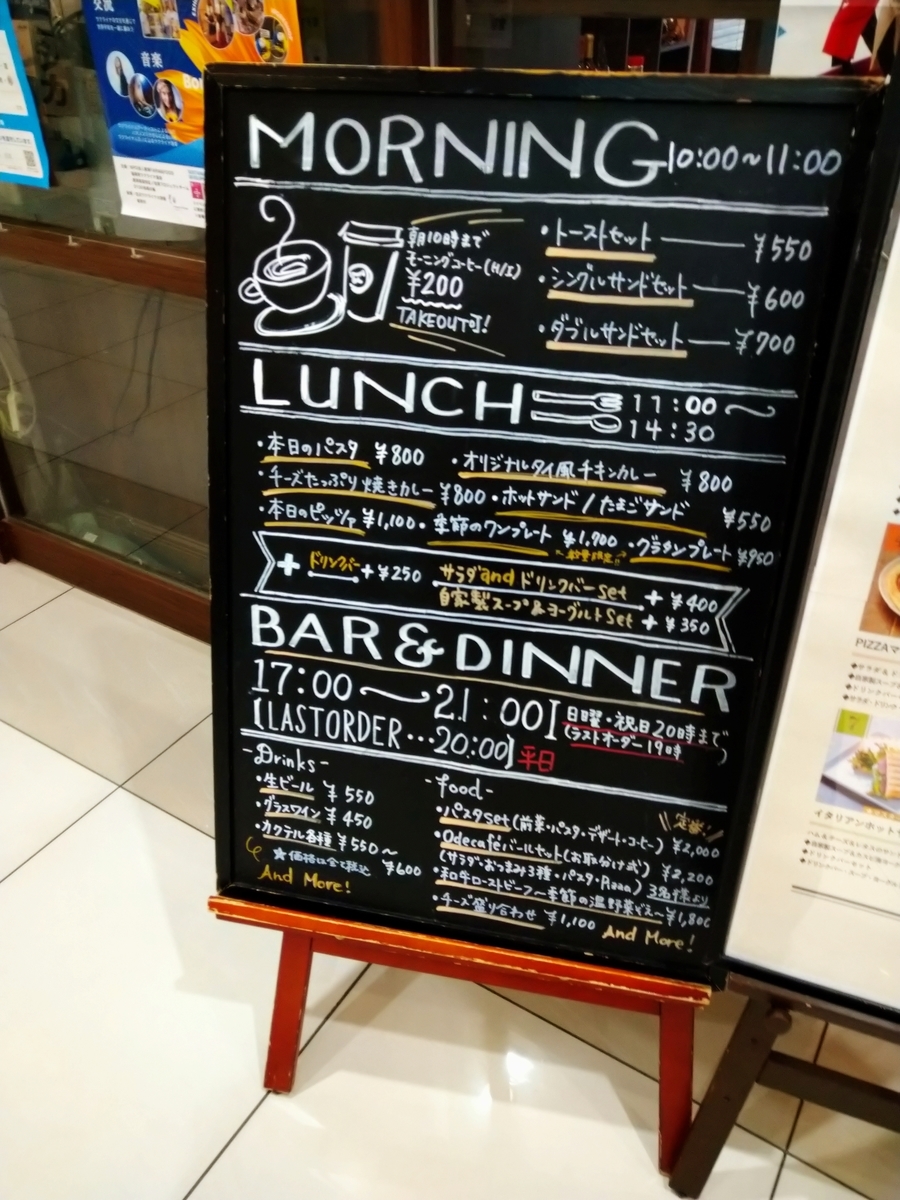 交流
音楽
MORNING 10:00~11:00
朝10時まで
モーニングコーヒー(H/I)
¥200
TAKEOUT可!
・トーストセット ¥550
・シングルサンドセット ¥600
・ダブルサンドセット ¥700
LUNCH 11:00~
14:30
・本日のパスタ ¥800 ・オリジナルタイ風チキンカレー ¥800
・チーズたっぷり焼きカレー ¥800 ・ホットサンド/たまごサンド ¥550
・本日のピッツァ ¥1,100 ・季節のワンプレート ¥1,700 ・グラタンプレート ¥950
数量限定!!
+ ドリンクバー +¥250 サラダandドリンクバーset +¥400
自家製スープ&ヨーグルトset +¥350
BAR&DINNER
17:00~21:00
【LASTORDER…20:00】平日
日曜・祝日20時まで
(ラストオーダー19時)
-Drinks-
・生ビール ¥550
・グラスワイン ¥450
・カクテル各種 ¥550~
¥600
★価格は全て税込
And More!
-food-
定番!
・パスタset(前菜・パスタ・デザート・コーヒー) ¥2,000
・Odecaféバールセット(お取分け式) ¥2,200
(サラダ・おつまみ3種・パスタ・Pizza) 3名様より
・和牛ローストビーフ~季節の温野菜ぞえ~ ¥1,800
・チーズ盛り合わせ ¥1,100
And More!
PIZZAマ
イタリアンホット